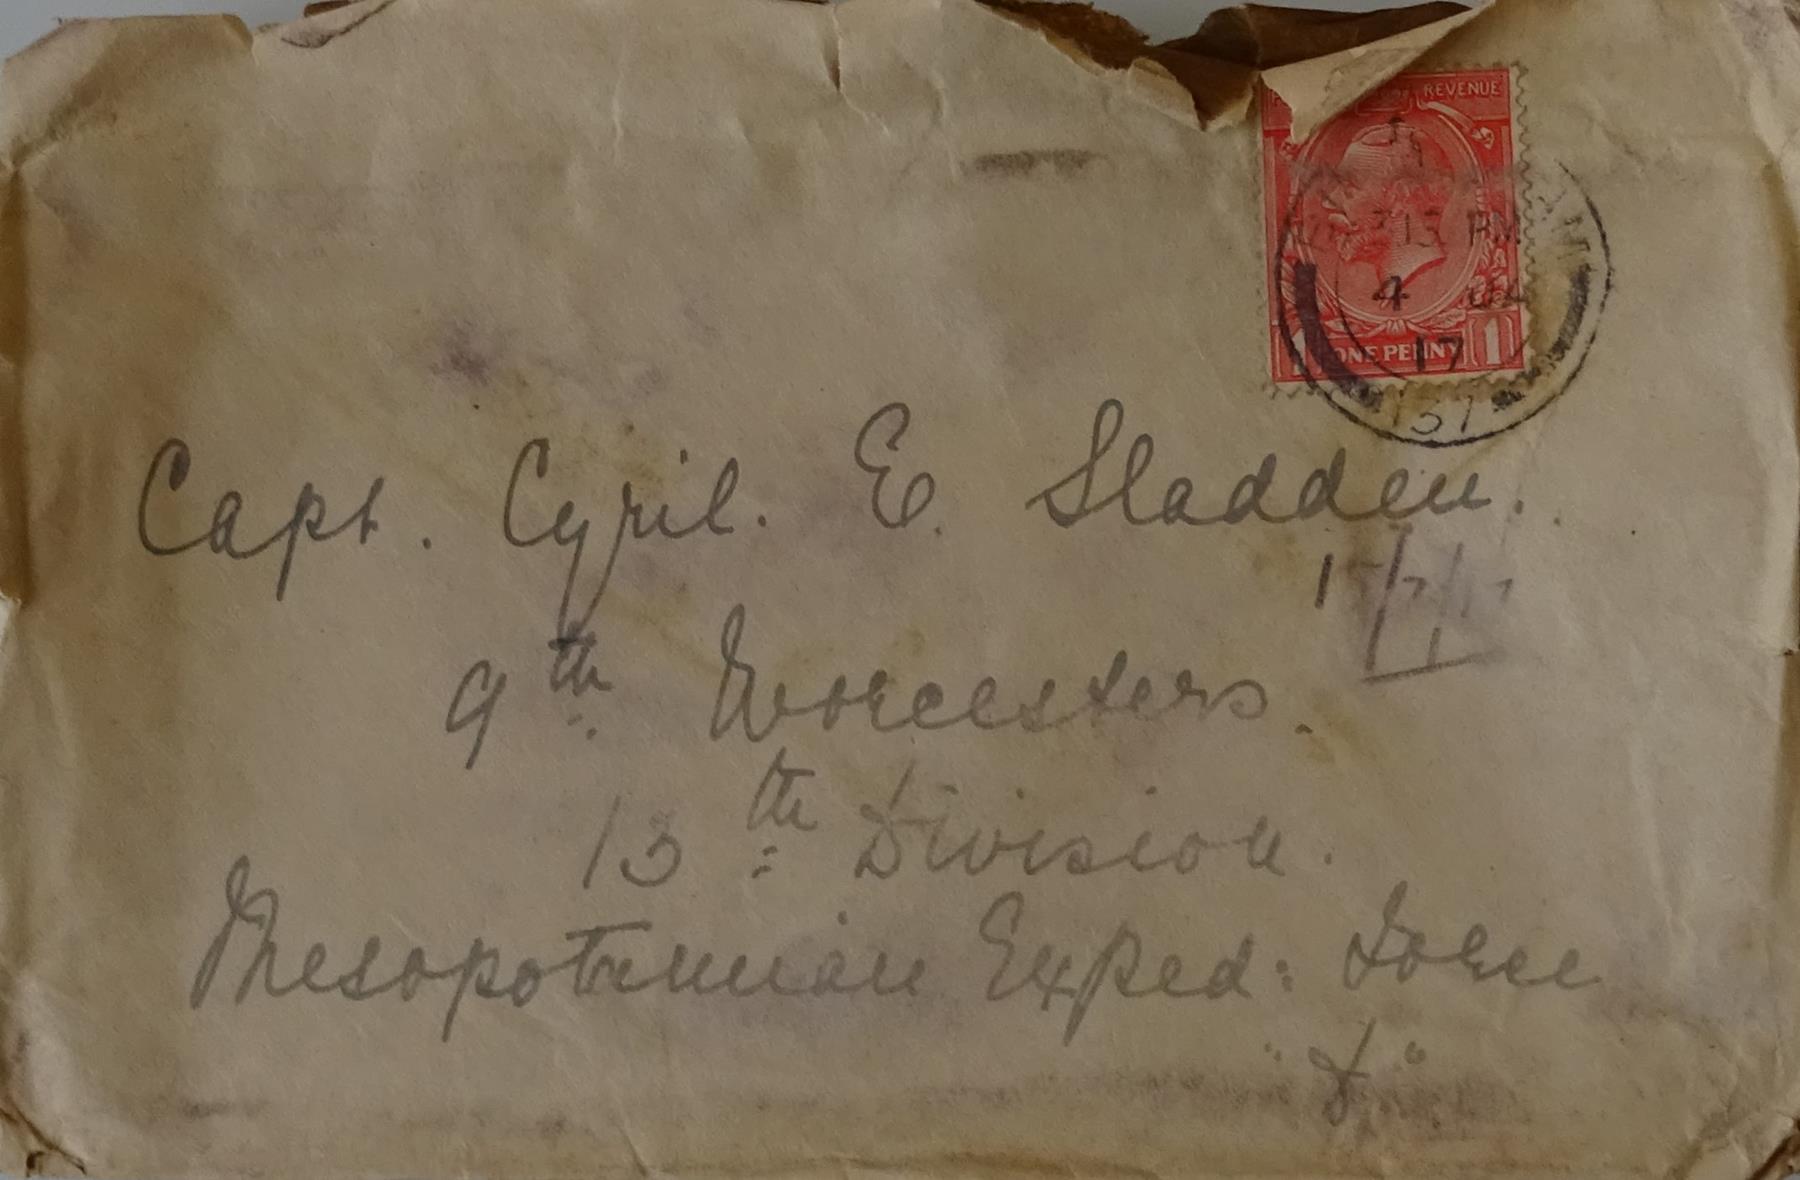 REVENUE
3 15 PM
4
17
ONE PENNY 1
131
Capt. Cyril. E. Sladden.
15/7/17
9th Worcesters.
13th Division.
Mesopotamian Exped: Force
"D".